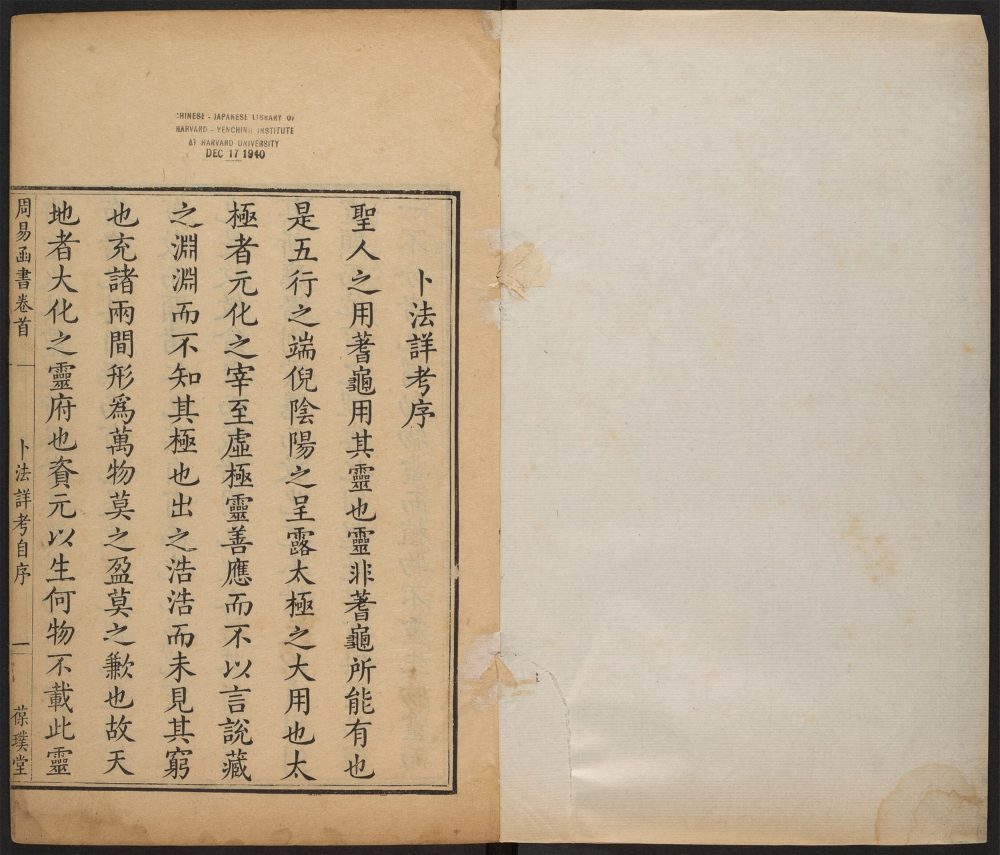 CHINESE - JAPANESE LIBRARY OF
HARVARD - YENCHING INSTITUTE
AT HARVARD UNIVERSITY
DEC 17 1940
卜法詳考序
聖人之用蓍龜用其靈也靈非蓍龜所能有也
是五行之端倪陰陽之呈露太極之大用也太
極者元化之宰至虛極靈善應而不以言說藏
之淵淵而不知其極也出之浩浩而未見其窮
也充諸兩間形爲萬物莫之盈莫之歉也故天
地者大化之靈府也資元以生何物不載此靈
周易函書卷首
卜法詳考自序
一
葆璞堂